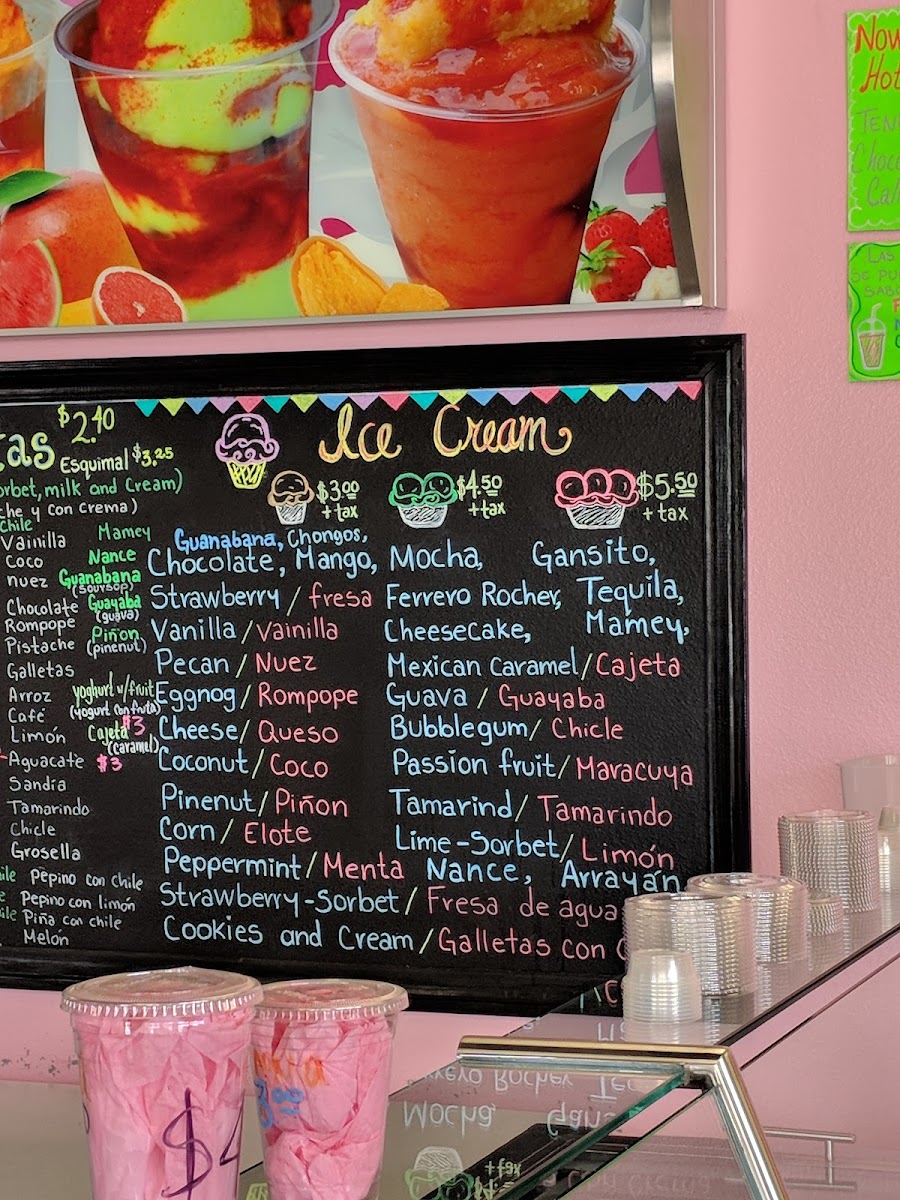 $2.40
Esquimal $3.25
Ice Cream
$3.00 + tax
$4.50 +tax
$5.50 + tax
Vainilla
Mamey
Coco
Nance
nuez
Guanabana
(soursop)
Chocolate
Guayaba
(guava)
Rompope
Piñon
(pinenut)
Pistache
Galletas
Arroz
yoghurt w/fruit
(yogurt con fruta)
Café
$3
Limón
Cajeta
(caramel)
$3
Aguacate
Sandia
Tamarindo
Chicle
Grosella
Pepino con chile
Pepino con limón
Piña con chile
Melón
Guanabana, Chongos,
Chocolate, Mango, Mocha, Gansito,
Strawberry / fresa
Ferrero Rocher, Tequila,
Vanilla / Vainilla
Cheesecake, Mamey,
Pecan / Nuez
Mexican Caramel / Cajeta
Eggnog / Rompope
Guava / Guayaba
Cheese / Queso
Bubblegum / Chicle
Coconut / Coco
Passion fruit / Maracuya
Pinenut / Piñon
Tamarind / Tamarindo
Corn / Elote
Lime-Sorbet / Limón
Peppermint / Menta
Nance, Arrayán
Strawberry-Sorbet / Fresa de agua
Cookies and Cream / Galletas con
Now
Hot
$4